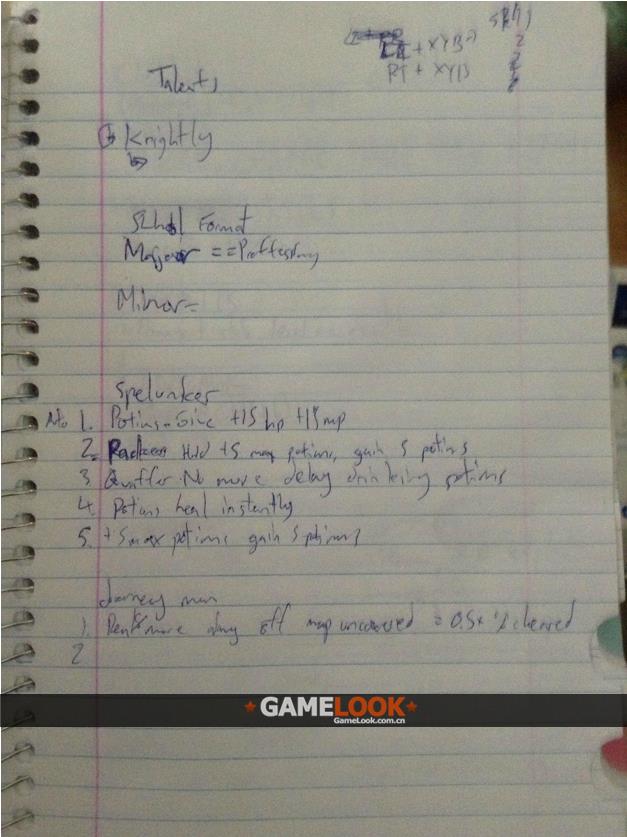 + XYB
RT + XYB
2
2
Talents
Knightly
Format
Major == Proffesing
Minor=
Spelunker
No 1. Potions - Give +15 hp +15 mp
2. Hold +5 max potions, gain 5 potions
3 Quaffer. No more delay drinking potions
4. Potions heal instantly
5. +5 max potions gain 5 potions
Journey man
1. more dmg off map uncovered = 0.5x % cleared
2
GAMELOOK
GameLook.com.cn